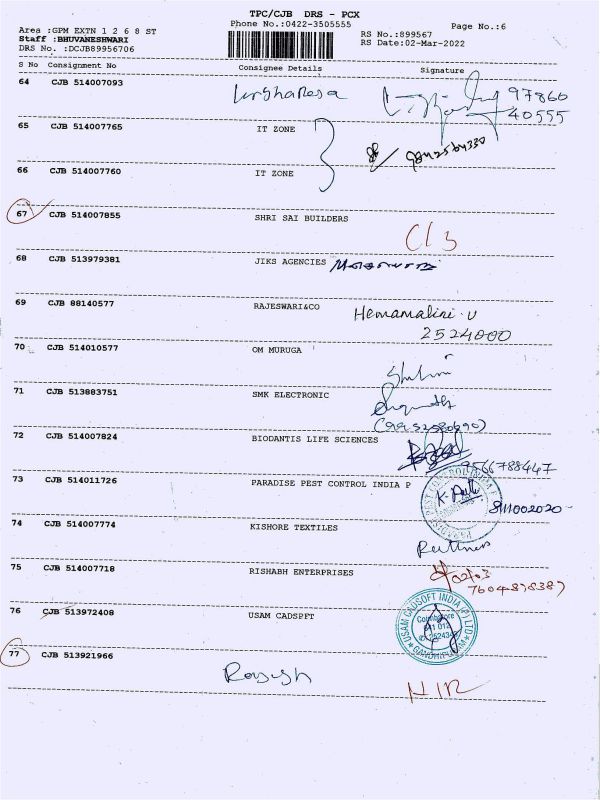 TPC/CJB DRS - PCX
Area :GPM EXTN 1 2 6 8 ST Phone No.:0422-3505555 Page No.:6
Staff :BHUVANESHWARI RS No.:899567
DRS No. :DCJB89956706 RS Date:02-Mar-2022
S No Consignment No Consignee Details Signature
64 CJB 514007093 97860
40555
65 CJB 514007765 IT ZONE
66 CJB 514007760 IT ZONE
67 CJB 514007855 SHRI SAI BUILDERS
68 CJB 513979381 JIKS AGENCIES
69 CJB 88140577 RAJESWARI&CO Hemamalini.U
2524000
70 CJB 514010577 OM MURUGA
71 CJB 513883751 SMK ELECTRONIC
72 CJB 514007824 BIODANTIS LIFE SCIENCES
9566788447
73 CJB 514011726 PARADISE PEST CONTROL INDIA P
8111002020
74 CJB 514007774 KISHORE TEXTILES
75 CJB 514007718 RISHABH ENTERPRISES
7604898389
76 CJB 513972408 USAM CADSPFT USAM CADSOFT INDIA (P) LTD
Coimbatore
77 CJB 513921966